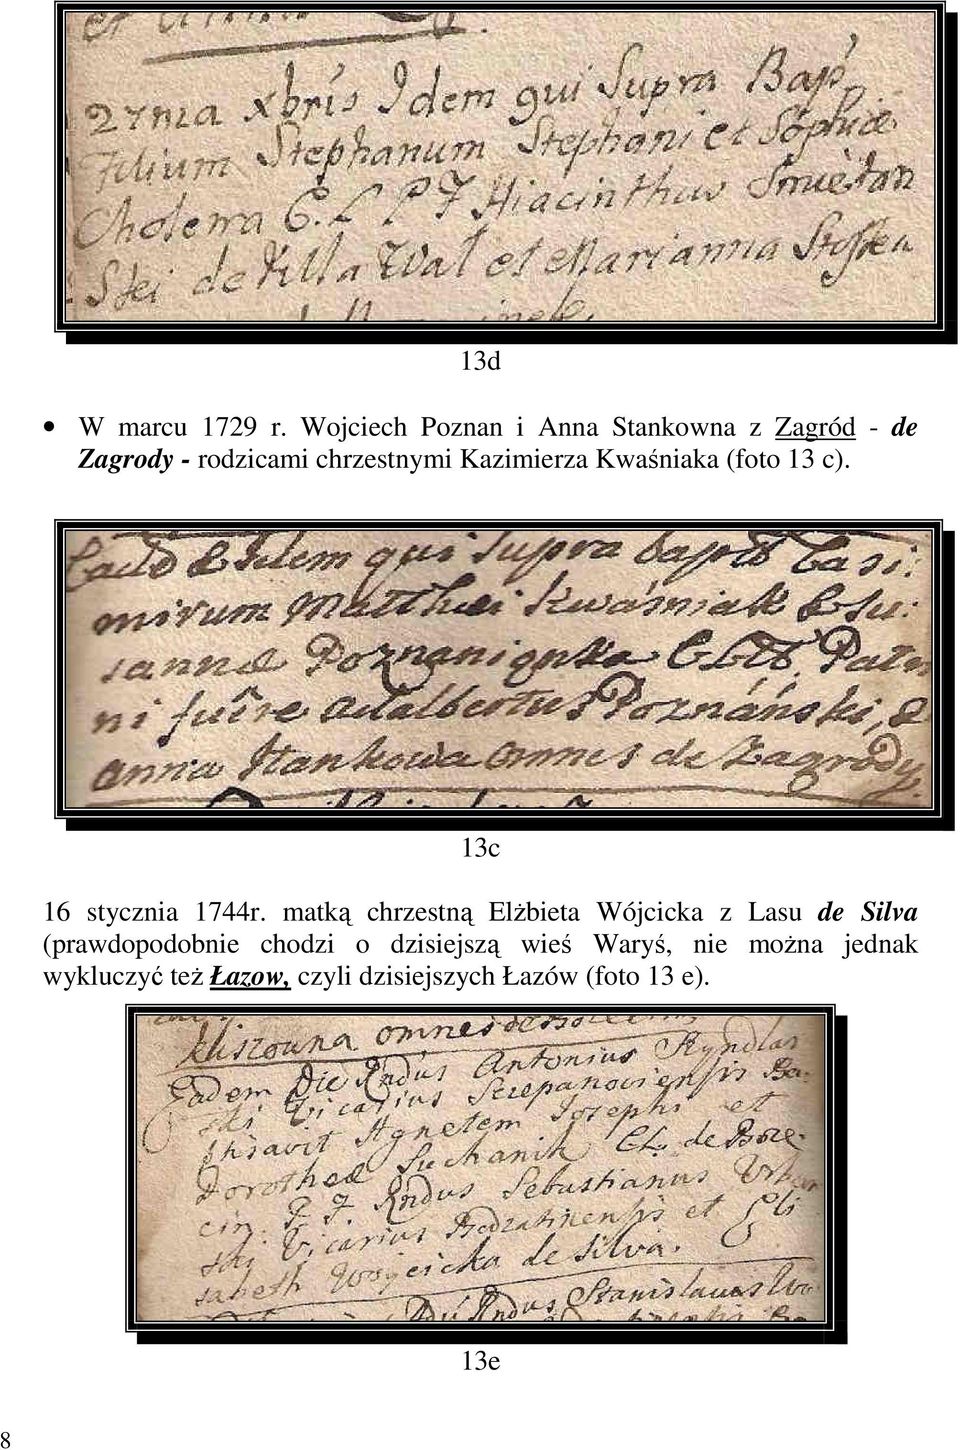 27ma xbris Idem qui Supra Bap:
Filium Stephanum Stephani et Sophiæ
Cholewa C. L P F Hiacinthus
Ski de Villa Wal et Marianna
13d
• W marcu 1729 r. Wojciech Poznan i Anna Stankowna z Zagród - de
Zagrody - rodzicami chrzestnymi Kazimierza Kwaśniaka (foto 13 c).
Eadē Idem qui supra bapto Casi:
mirum Matthei Kwaśniak & Su:
sannæ Poznanionka CLLB Patri
ni fuēre Adalbertus Poznáński, &
Anna Stankowa omnes de Zagrody
13c
16 stycznia 1744r. matką chrzestną Elżbieta Wójcicka z Lasu de Silva
(prawdopodobnie chodzi o dzisiejszą wieś Waryś, nie można jednak
wykluczyć też Łazow, czyli dzisiejszych Łazów (foto 13 e).
Kliszowna omnes de
Eadem Die Rndus Antonius Ryndlar
ski Vicarius Szczepanoviensis Ba-
thisavit Agnetem Josephi et
Dorotheæ Suchanik CL: de Borze-
cin. P. F. Rndus Sebastianus Urban
ski Vicarius et Eli
sabeth Woycicka de Silva.
Rndus Stanislaus
13e
8